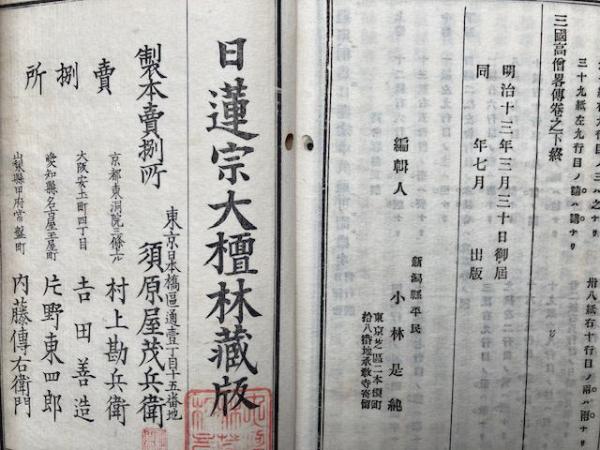 卅八紙右十行目ノ兩ハ雨ナリ
三十九紙左九行目ノ
三國高僧畧傳卷之下終
明治十三年三月二十日御屆
同年七月 出版
編輯人
新潟縣平民
小林是純
東京芝區二本榎町
拾八番地承敎寺寄留
日蓮宗大檀林藏版
製本賣捌所
東京日本橋區通壹丁目十五番地
須原屋茂兵衛
賣捌所
京都東洞院三條上ル
村上勘兵衛
大阪安土町四丁目
吉田善造
愛知縣名古屋玉屋町
片野東四郎
山梨縣甲府常盤町
內藤傳右衛門